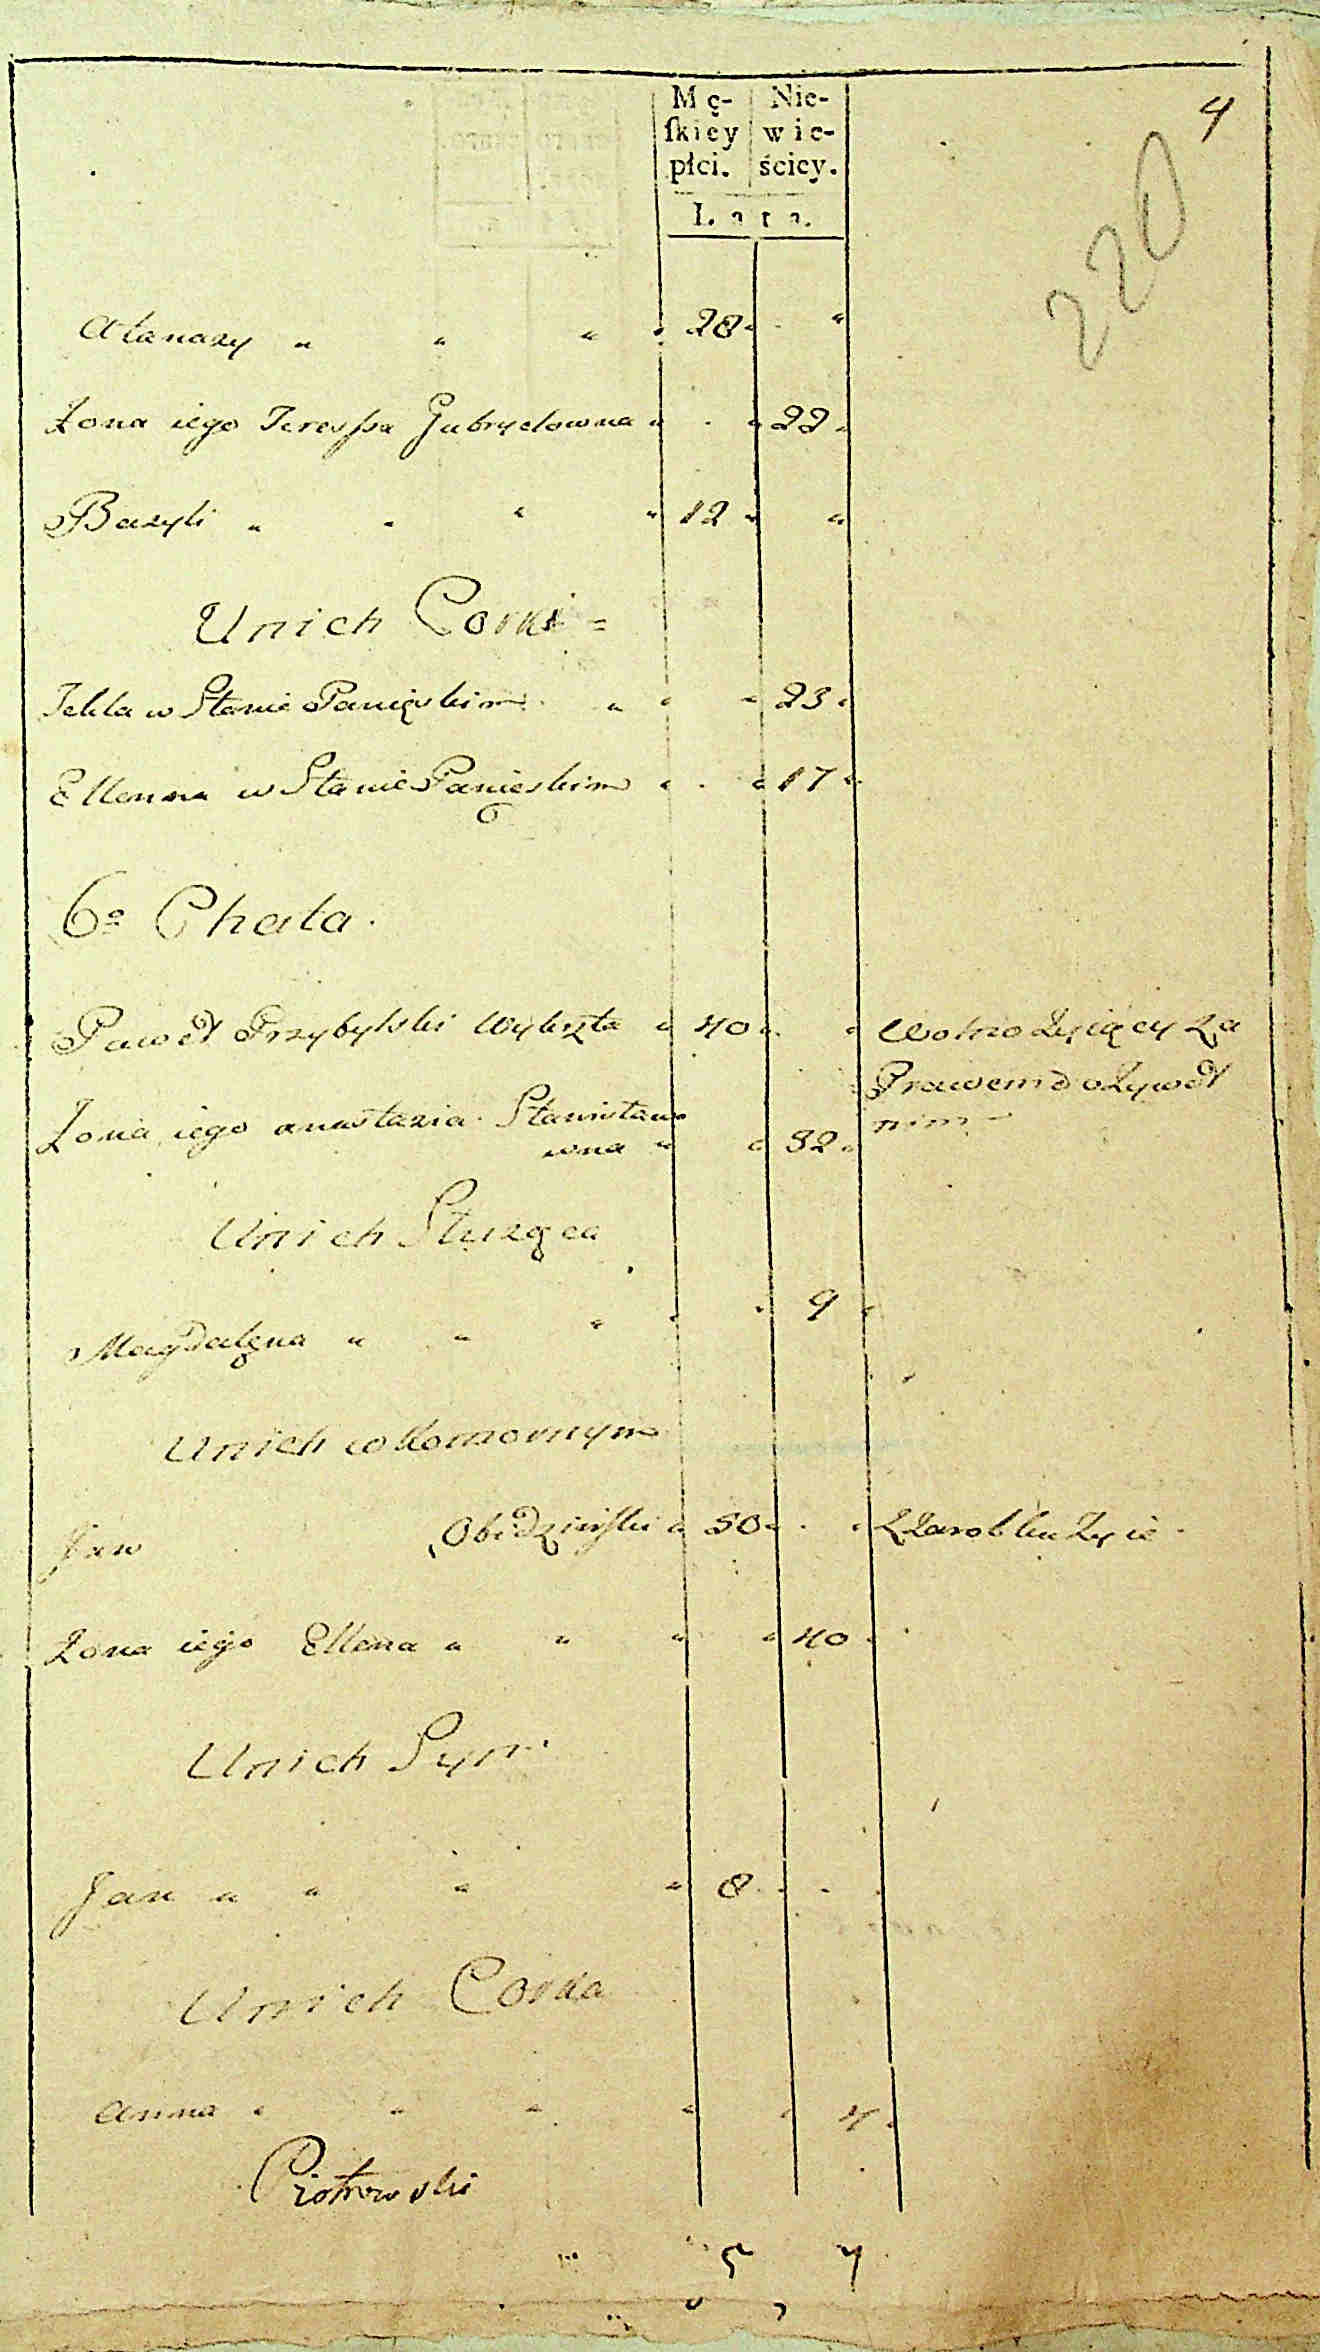 4
220
Mę- Nie-
ſkiey wie-
płci. ściey.
Lata.
Atanazy " " " " 28 " "
Żona iego Teressa Gabryelowna " " 22 "
Bazyli " " " " 12 " "
Unich Corki =
Tekla w Stanie Panięskim " " " 23 "
Ellenna w Stanie Panięskim " " 17 "
6a Chata.
Paweł Przybylski 40 " " Wolno Żyiący za
Prawem dożywot
nim
Żona iego anastazia Stanisław
owna " " 32 "
Unich Służąca
Magdalęna " " " " " 9 "
Unich w Komornym
Jan Obidzinski " 50 " " Z Zarobku Żyie
Żona iego Ellena " " " " 40 "
Unich Syn
Jan " " " " 8
Unich Corka
Anna " " " " " 4 "
Piotrowski
5 7